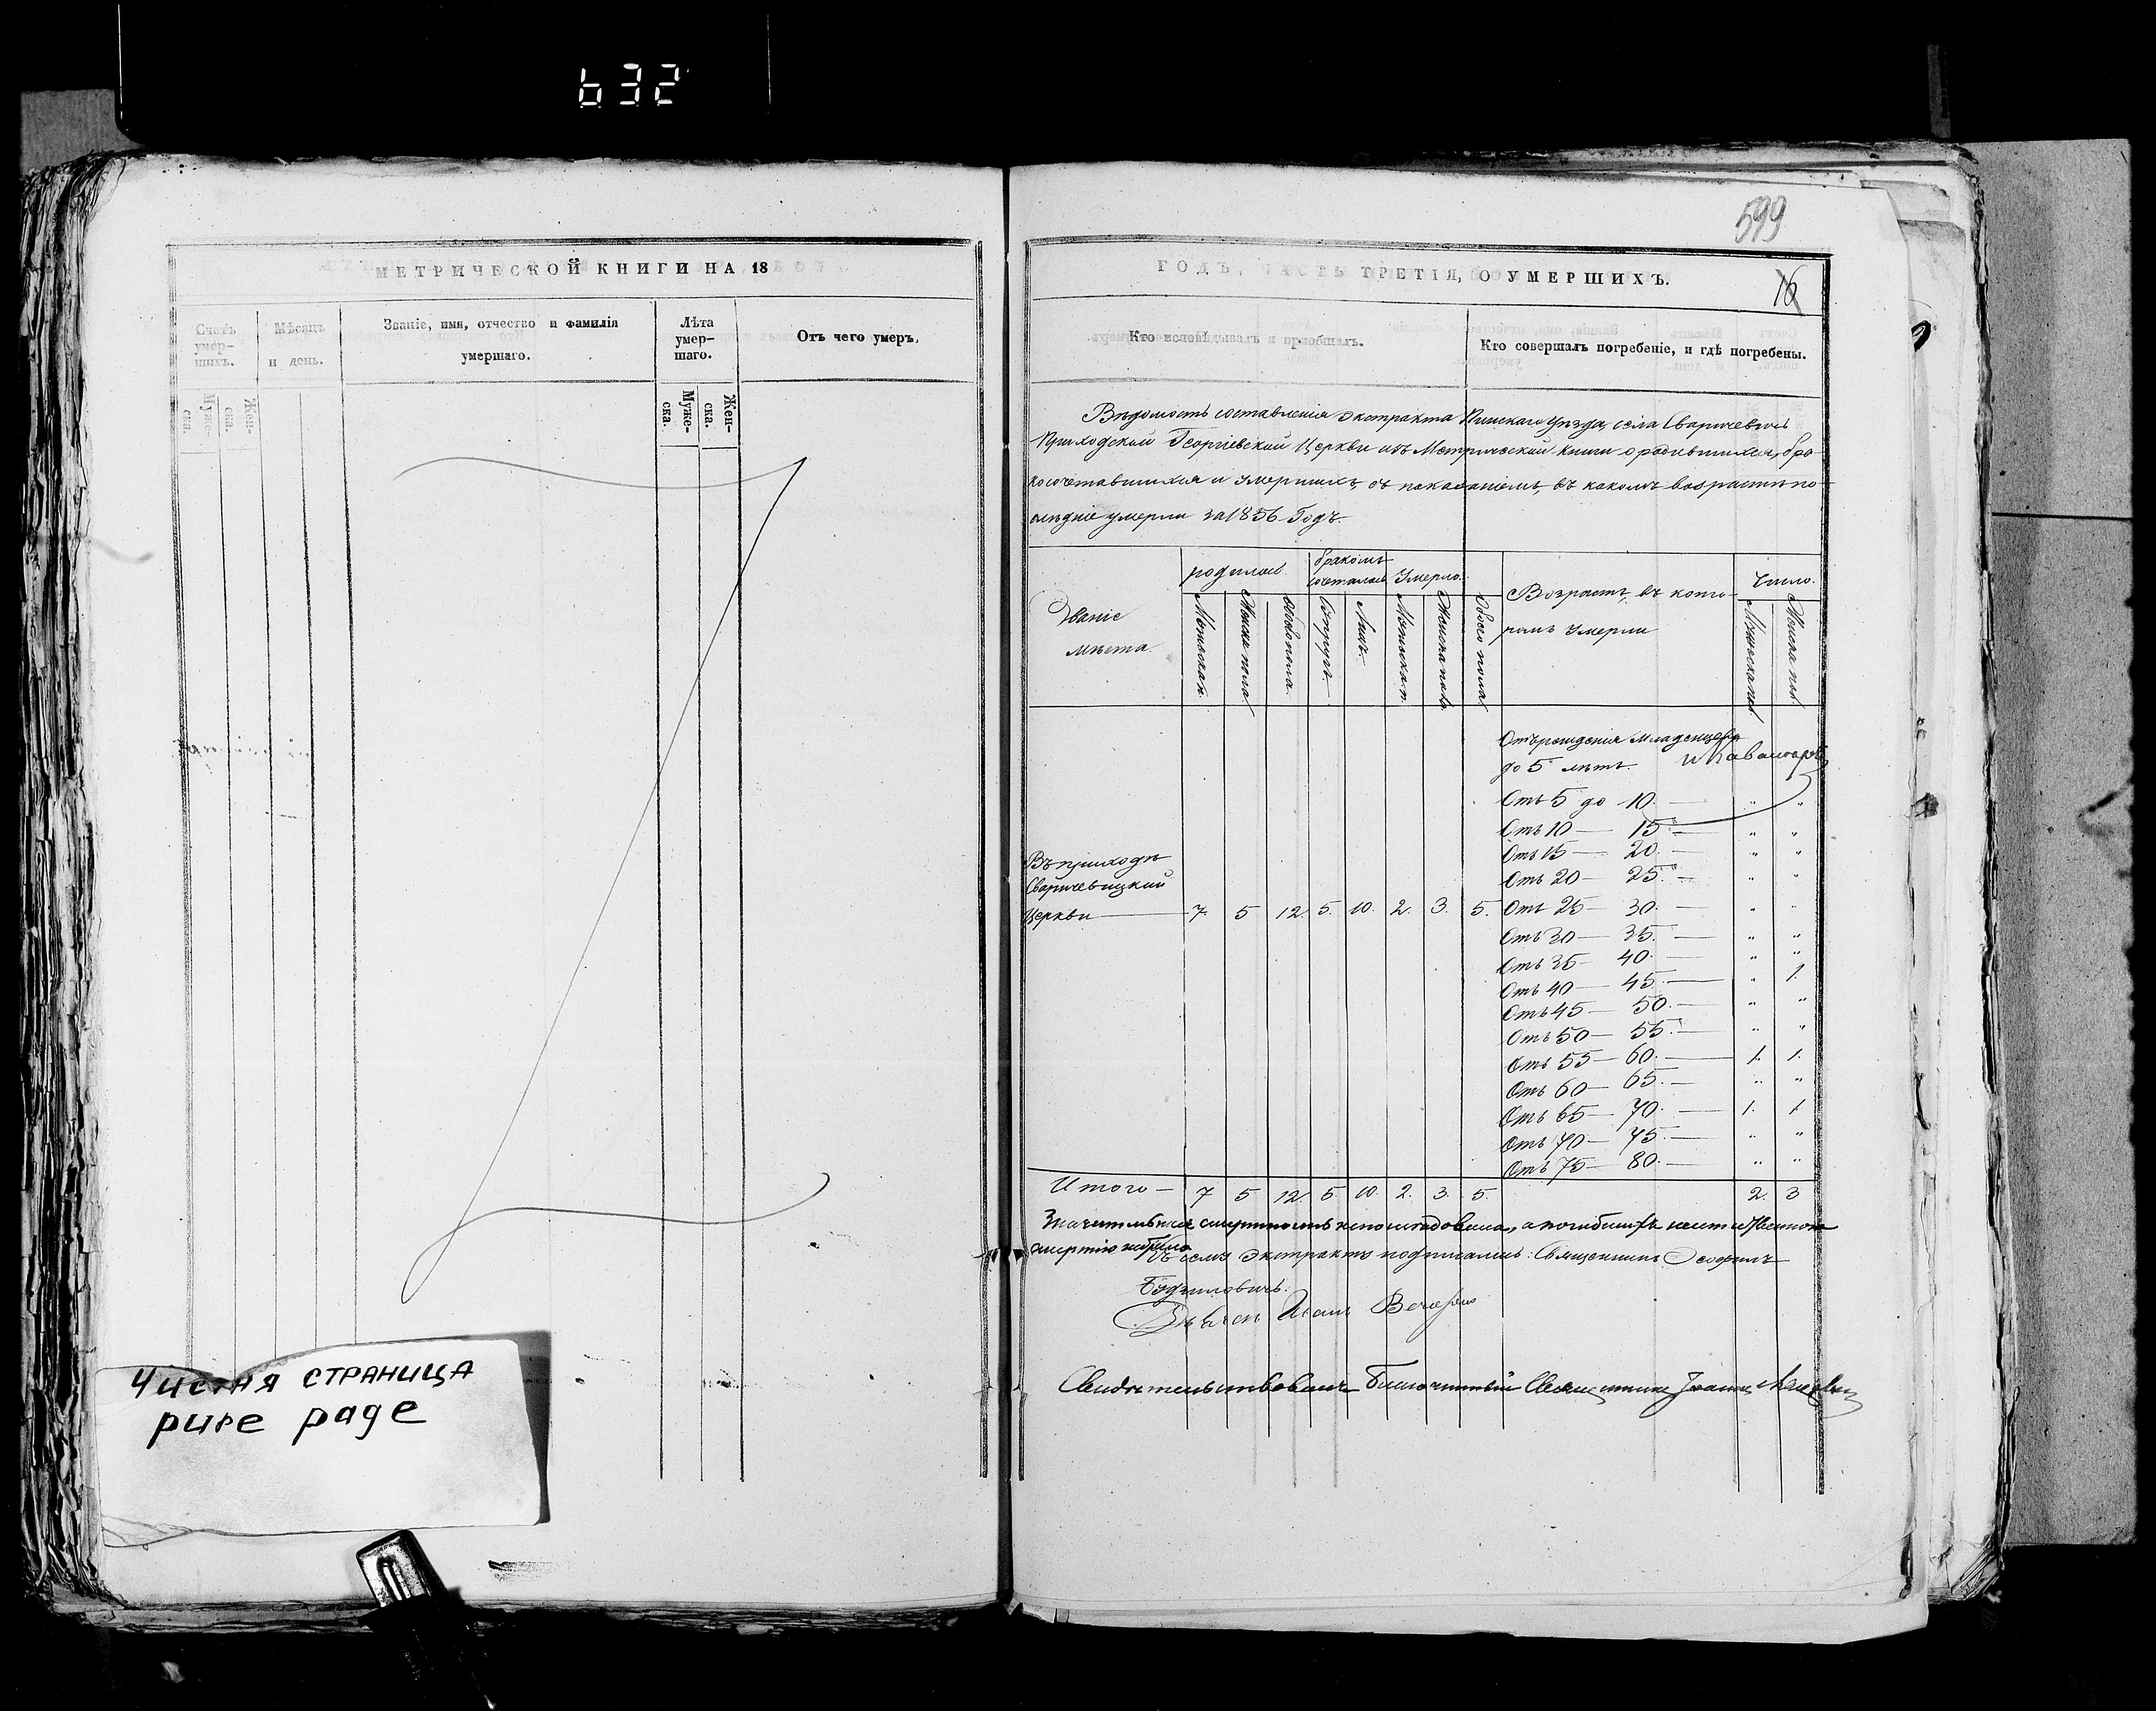 632
МЕТРИЧЕСКОЙ КНИГИ НА 18
Счетъ умерших.
Мѣсяцъ и день.
Званіе, имя, отчество и фамилія умершаго.
Лѣта умершаго.
Отъ чего умеръ.
Муже-
ска.
Жен-
ска.
Муже-
ска.
Жен-
ска.
Чистая страница
pure page
599
ГОДЪ, ЧАСТЬ ТРЕТІЯ, О УМЕРШИХЪ.
16
Кто исповѣдывалъ и пріобщалъ.
Кто совершалъ погребеніе, и гдѣ погребены.
Вѣдомость составленія экстракта Пинскаго уѣзда, села Сваричевичь
Приходской Георгіевской Церкви изъ Метрической книги о родившихся, бра-
косочетавшихся и умершихъ, съ показаніемъ, въ какомъ возрастѣ по-
слѣдніе умерли за 1856 Годъ.
Званіе
мѣста.
родилось
бракомъ
сочеталось
Умерло.
Возрастъ, въ кото-
ромъ Умерли
Число.
Мужеска п.
Женска пола
Обоего пола.
Супругъ
Лицъ.
Мужеска п.
Женска пола
Обоего пола
Мужеска пол
Женска пол
Отъ рожденія младенцевъ
до 5 лѣтъ.
Отъ 5 до 10. — " "
Отъ 10 — 15. — " "
Отъ 15 — 20. — " "
Отъ 20 — 25. — " "
Въ приходѣ
Сваричевицкий
Церкви — 7. 5 12. 5. 10. 2. 3. 5. Отъ 25 — 30. — " "
Отъ 30 — 35. — " "
Отъ 35 — 40. — " "
Отъ 40 — 45. — " 1.
Отъ 45 — 50. — " "
Отъ 50 — 55. — " "
Отъ 55 — 60. — 1. 1.
Отъ 60 — 65. — " "
Отъ 65 — 70. — 1. 1
Отъ 70 — 75. — " "
Отъ 75 — 80. — " "
Итого — 7 5 12. 5. 10. 2. 3. 5. 2. 3
смертію небыло
Къ сему Экстракту подписались: Священникъ Ѳеофилъ
Будзиловичъ.
Дьячок Иоан
Свидѣтельствовалъ Благочинный Священникъ Іоаннъ